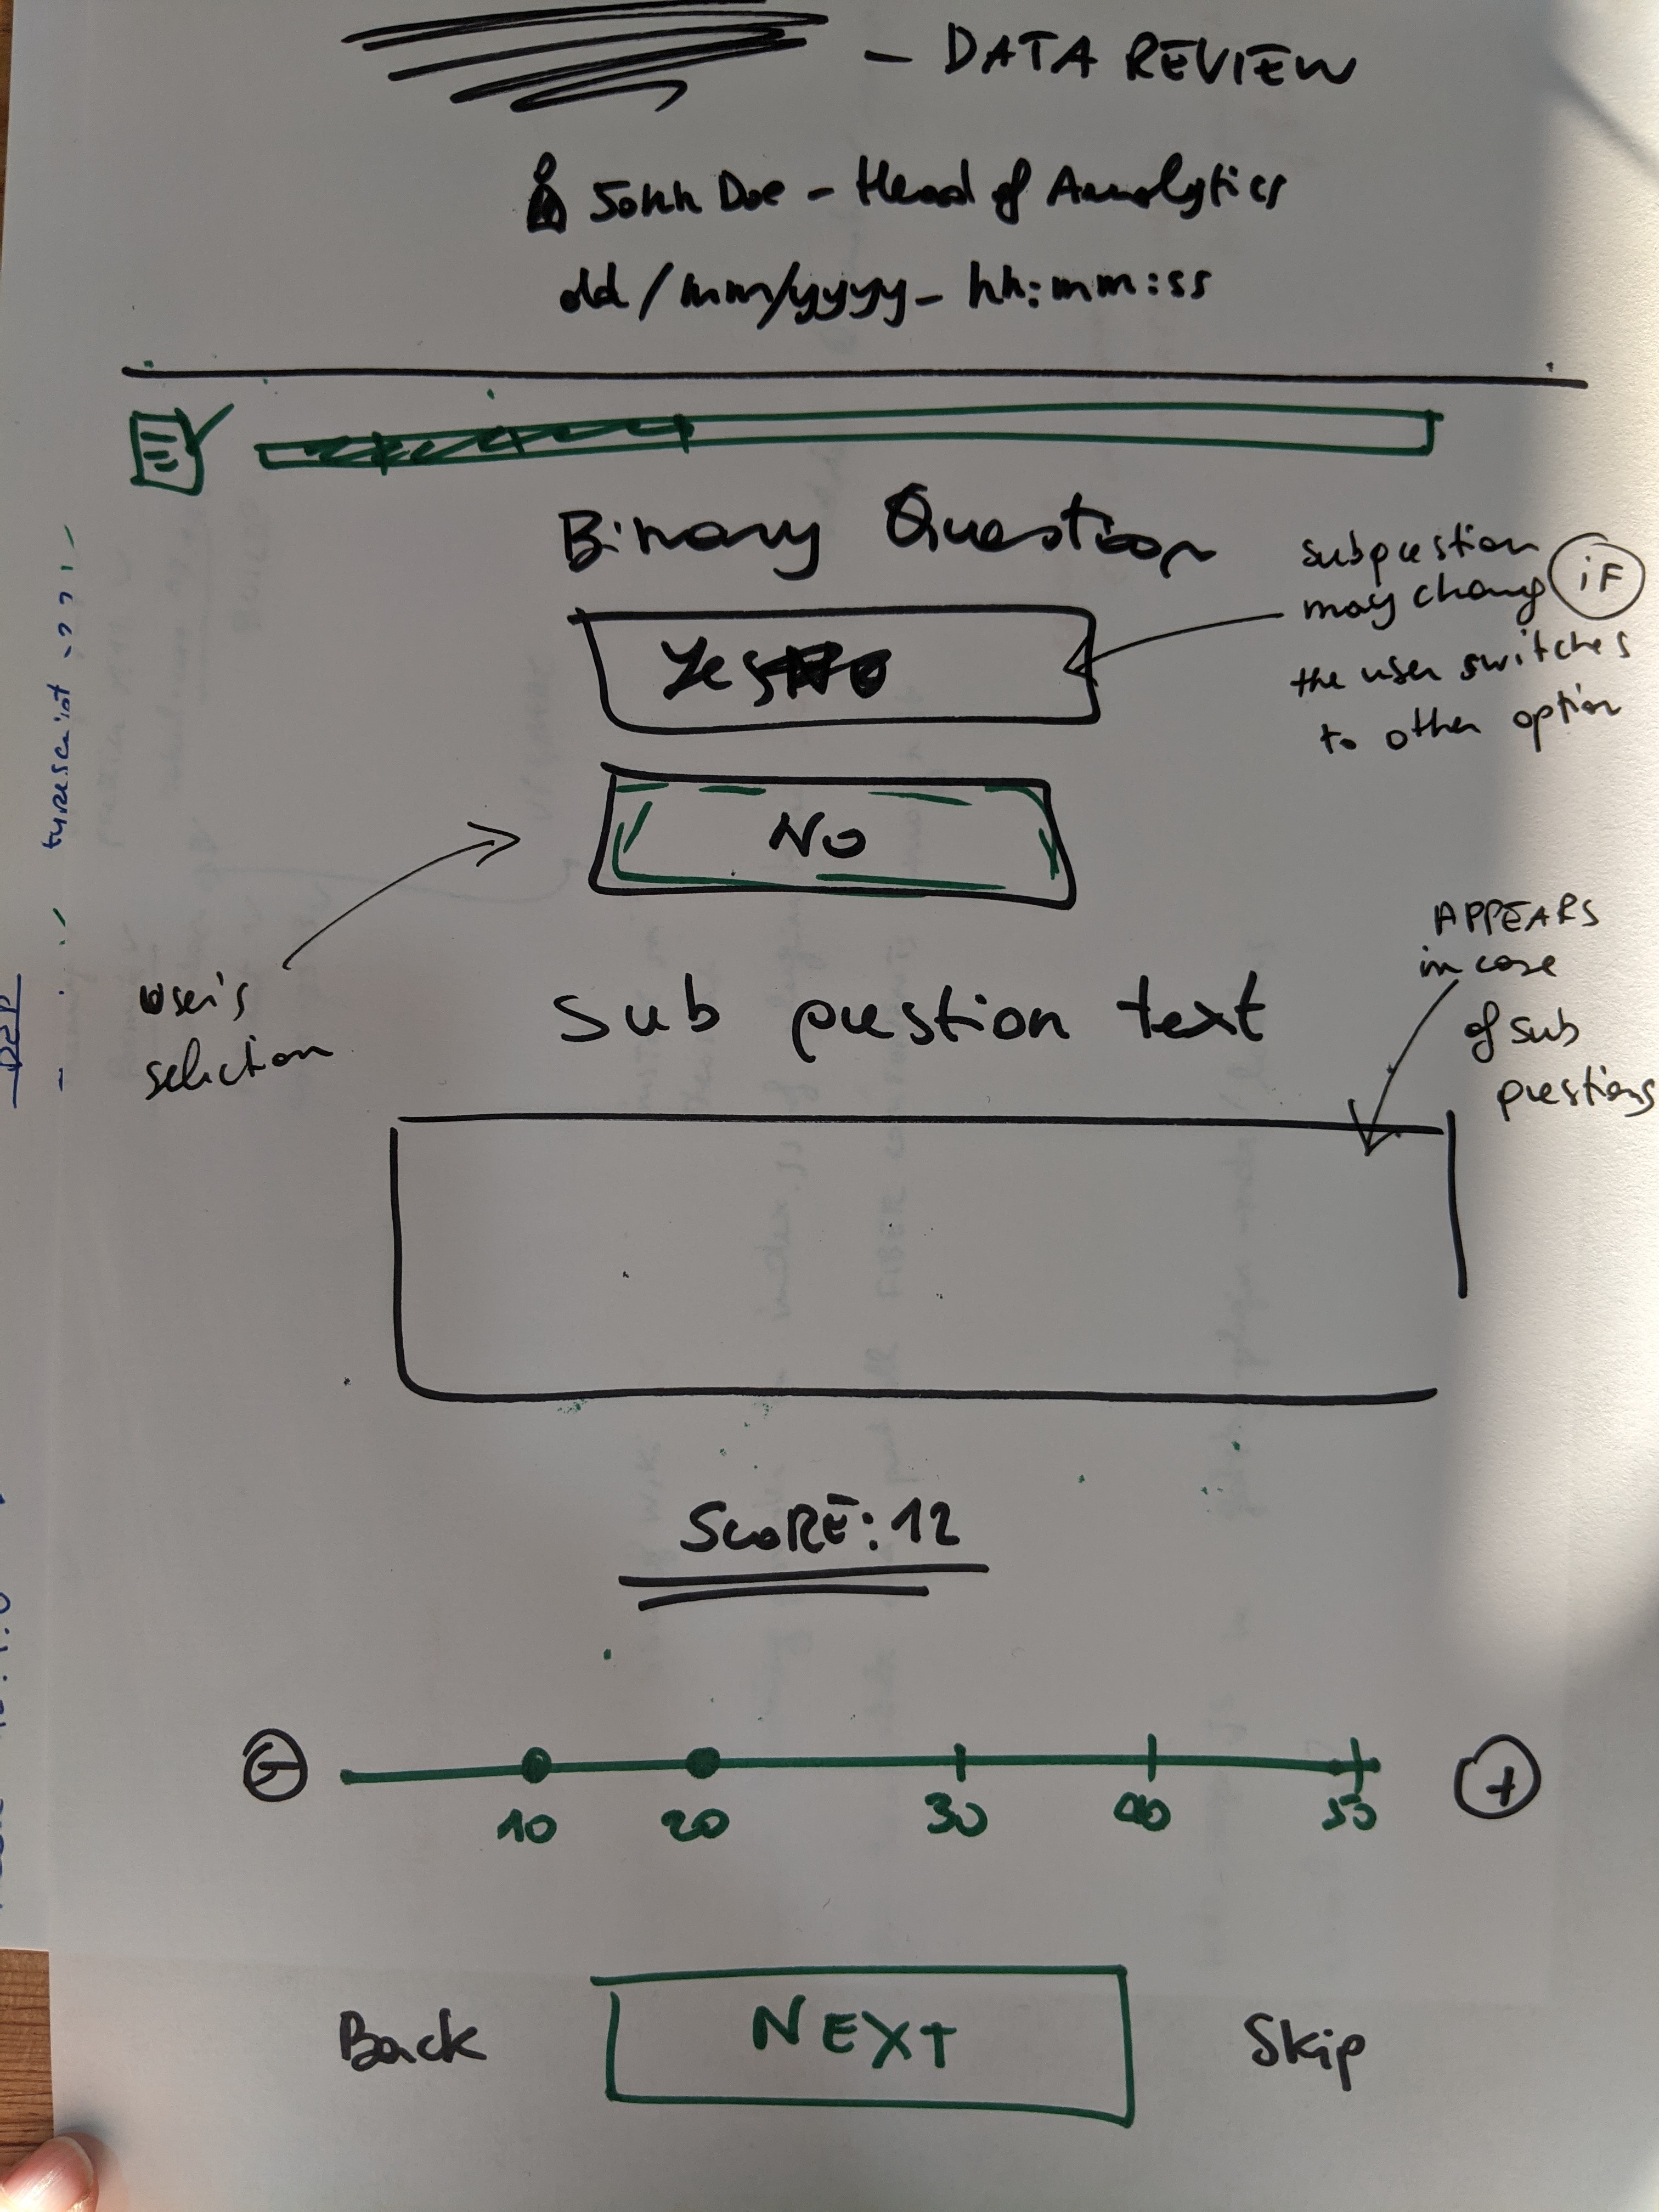 - DATA REVIEW
John Doe - Head of Analytics
dd/mm/yyyy - hh:mm:ss
Binary Question
subquestion
may change iF
the user switches
to other option
Yes
NO
user's
selection
APPEARS
in case
of sub
questions
Sub question text
SCORE: 12
- +
10 20 30 40 50
Back NEXT Skip